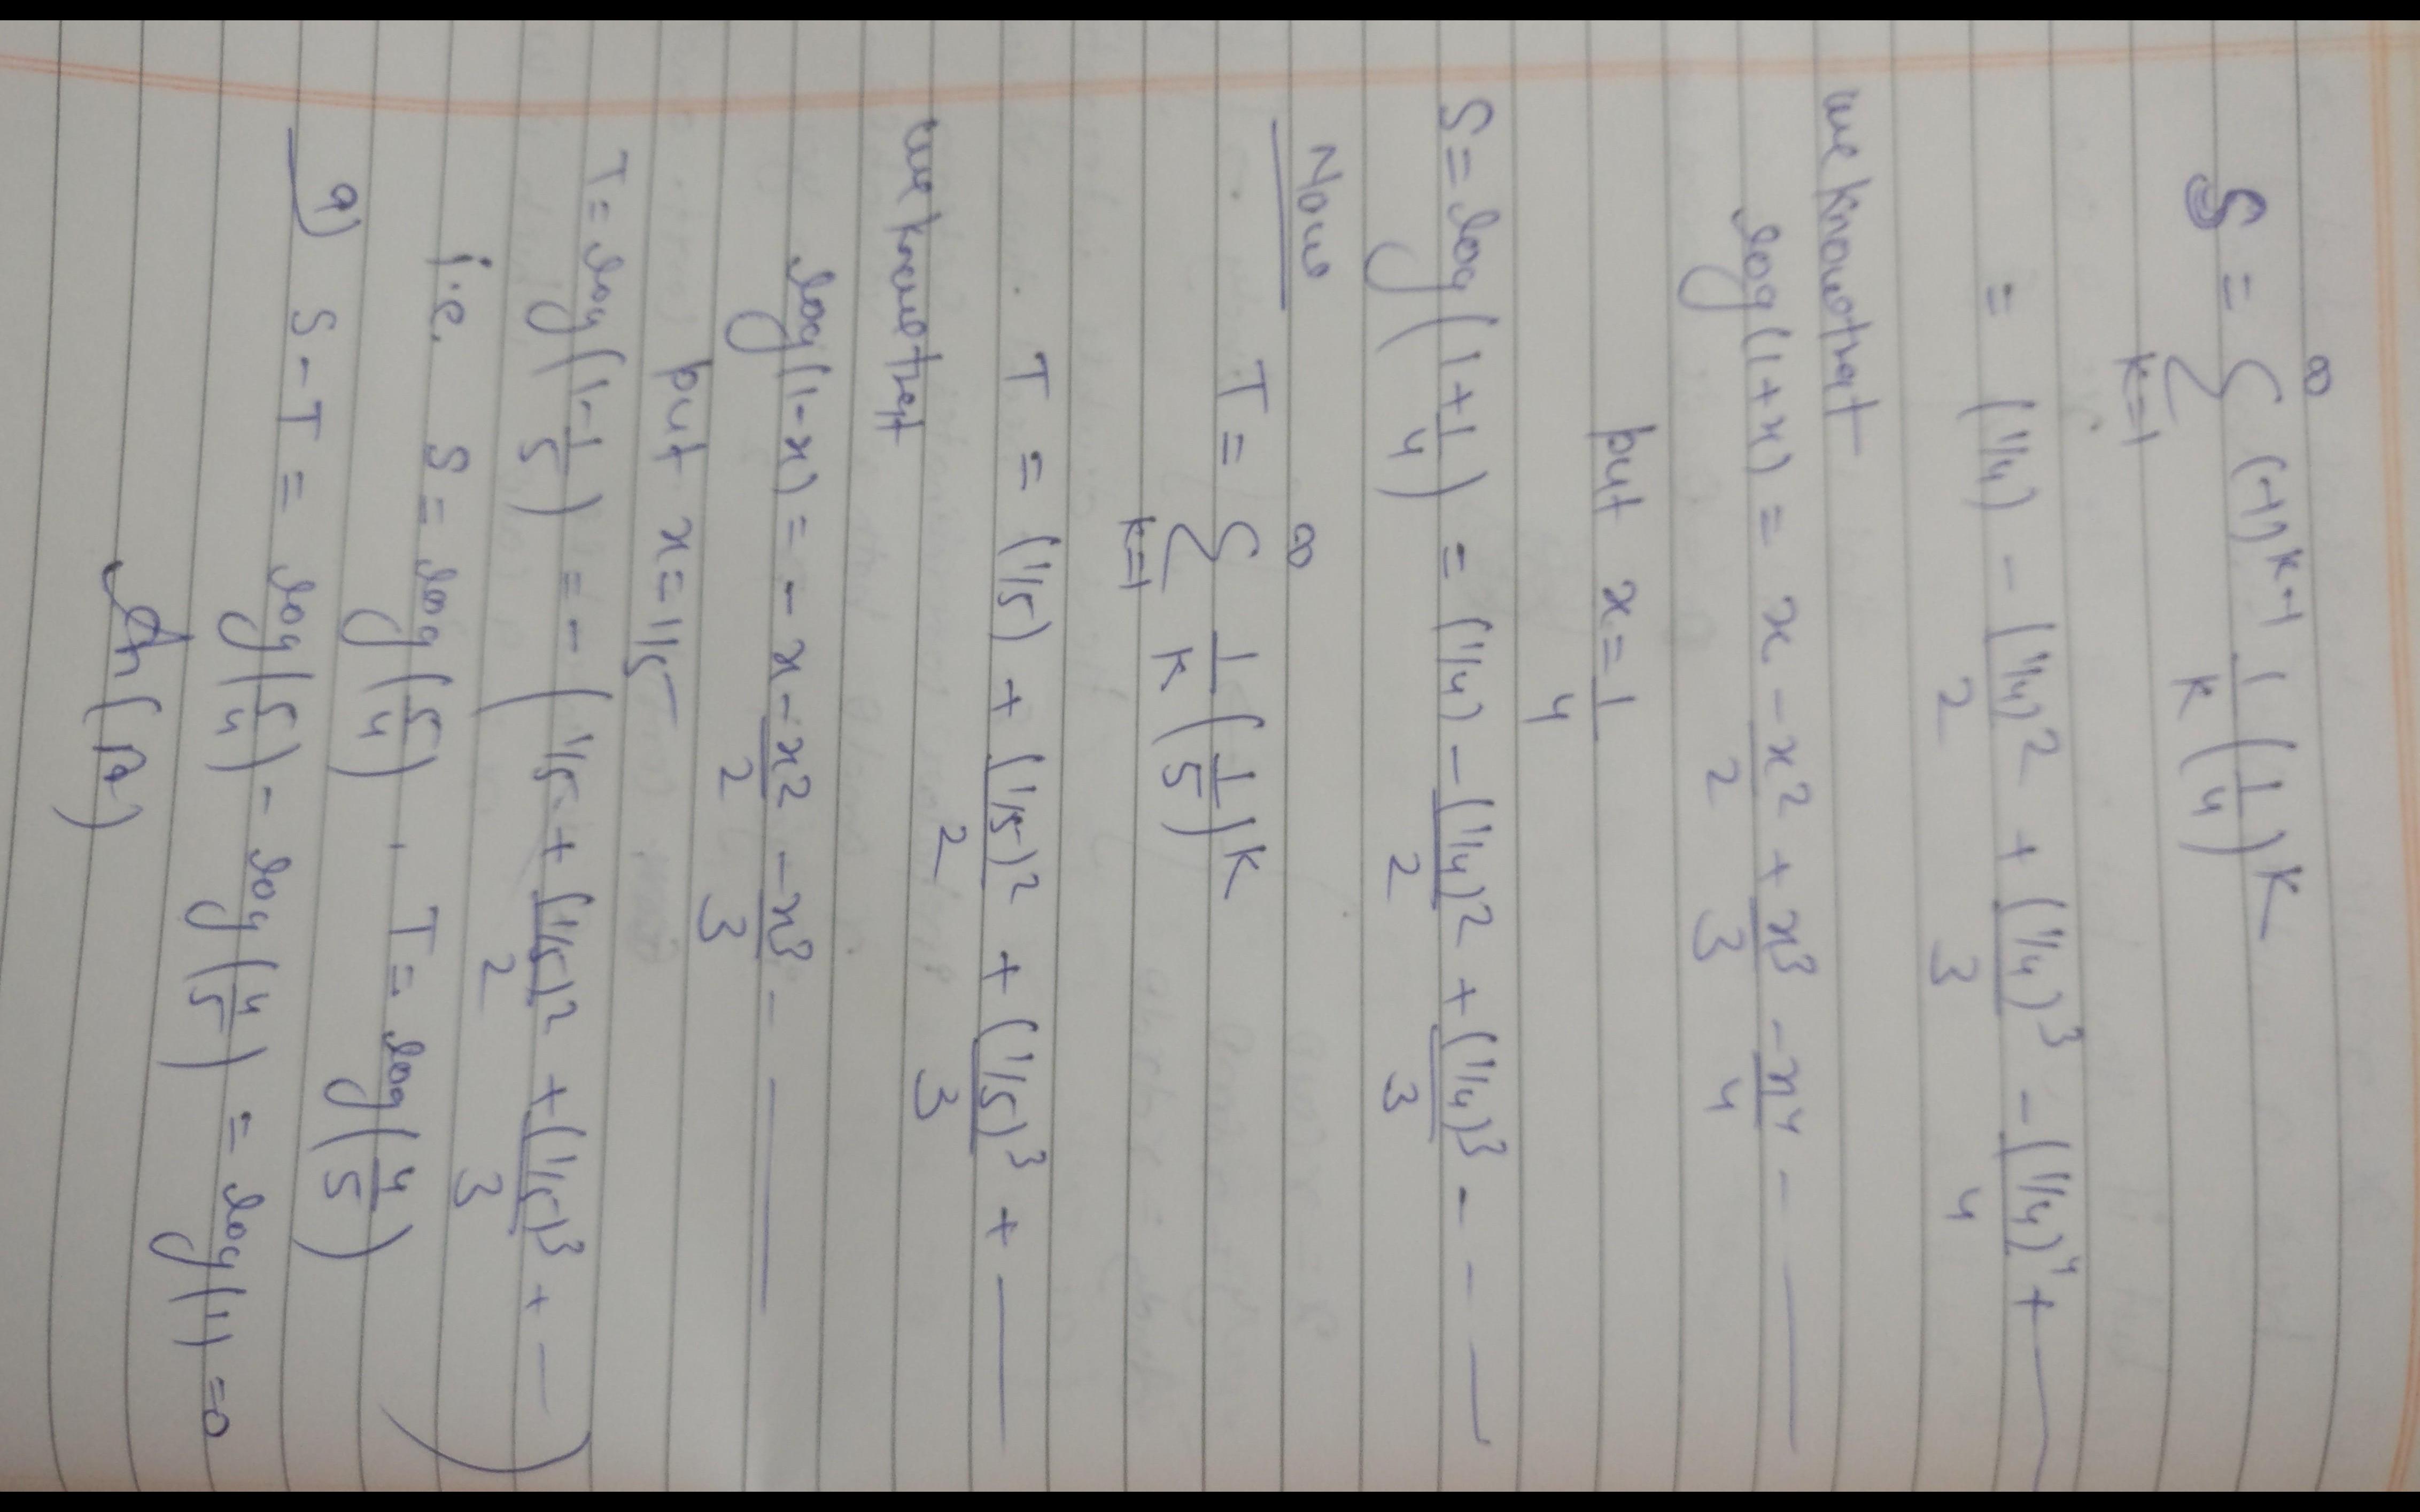 S = ∞Σk=1 (-1)^k-1 1/k (1/4)^k
= (1/4) - (1/4)^2/2 + (1/4)^3/3 - (1/4)^4/4 + —
we know that
log(1+x) = x - x^2/2 + x^3/3 - x^4/4 - —
put x = 1/4
S = log(1+1/4) = (1/4) - (1/4)^2/2 + (1/4)^3/3 - - —
Now T = ∞Σk=1 1/k (1/5)^k
T = (1/5) + (1/5)^2/2 + (1/5)^3/3 + —
we know that
log(1-x) = - x - x^2/2 - x^3/3 - —
put x = 1/5
T = log(1-1/5) = - (1/5 + (1/5)^2/2 + (1/5)^3/3 + —)
i.e. S = log(5/4) , T = log(4/5)
a) S-T = log(5/4) - log(4/5) = log(1) = 0